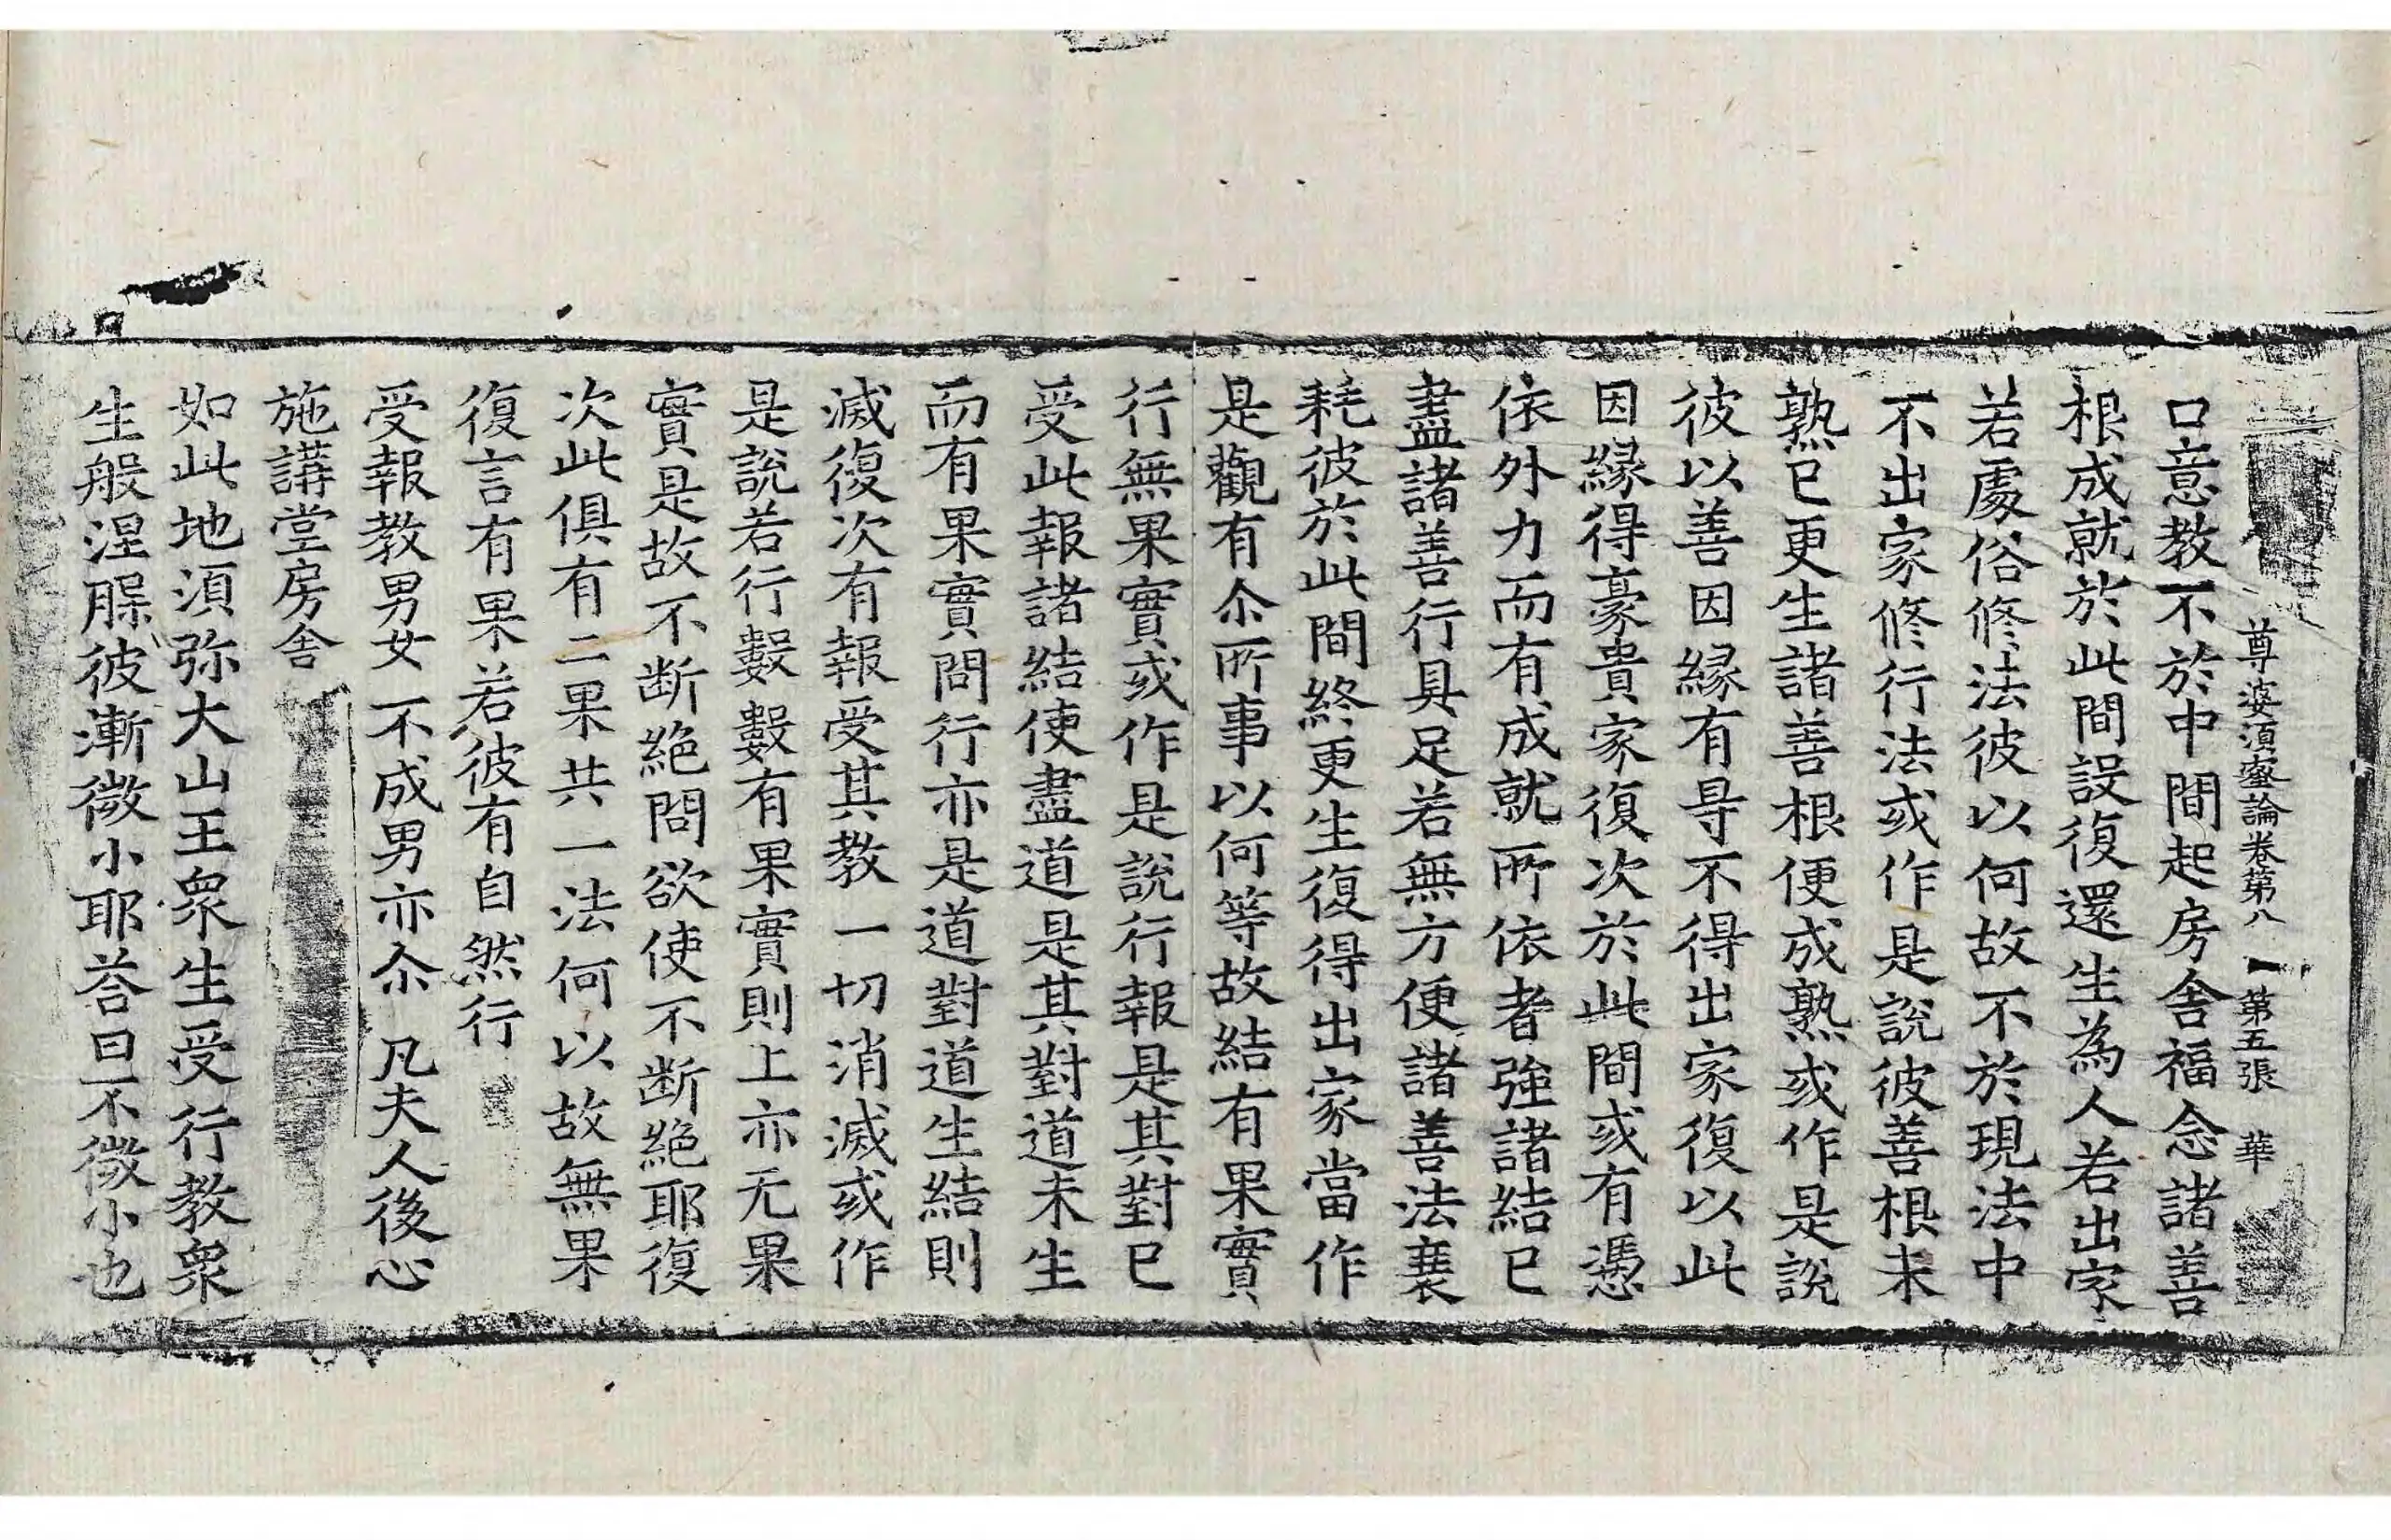 尊婆湏蜜論卷第八　第五張　華
口意教不於中間起房舎福念諸善
根成就於此間設復還生為人若出家
若處俗修法彼以何故不於現法中
不出家修行法或作是說彼善根未
熟已更生諸善根便成熟或作是說
彼以善因縁有㝵不得出家復以此
因縁得豪貴家復次於此間或有憑
依外力而有成就所依者強諸結已
盡諸善行具足若無方便諸善法衰
耗彼於此間終更生復得出家當作
是觀有尒所事以何等故結有果實
行無果實或作是說行報是其對已
受此報諸結使盡道是其對道未生
而有果實問行亦是道對道生結則
滅復次有報受其教一切消滅或作
是說若行數數有果實則上亦无果
實是故不断絶問欲使不断絶耶復
次此俱有二果共一法何以故無果
復言有果若彼有自然行
受報教男女不成男亦尒　凡夫人後心
施講堂房舎
如此地湏弥大山王衆生受行教衆
生般涅槃彼漸微小耶荅曰不微小也